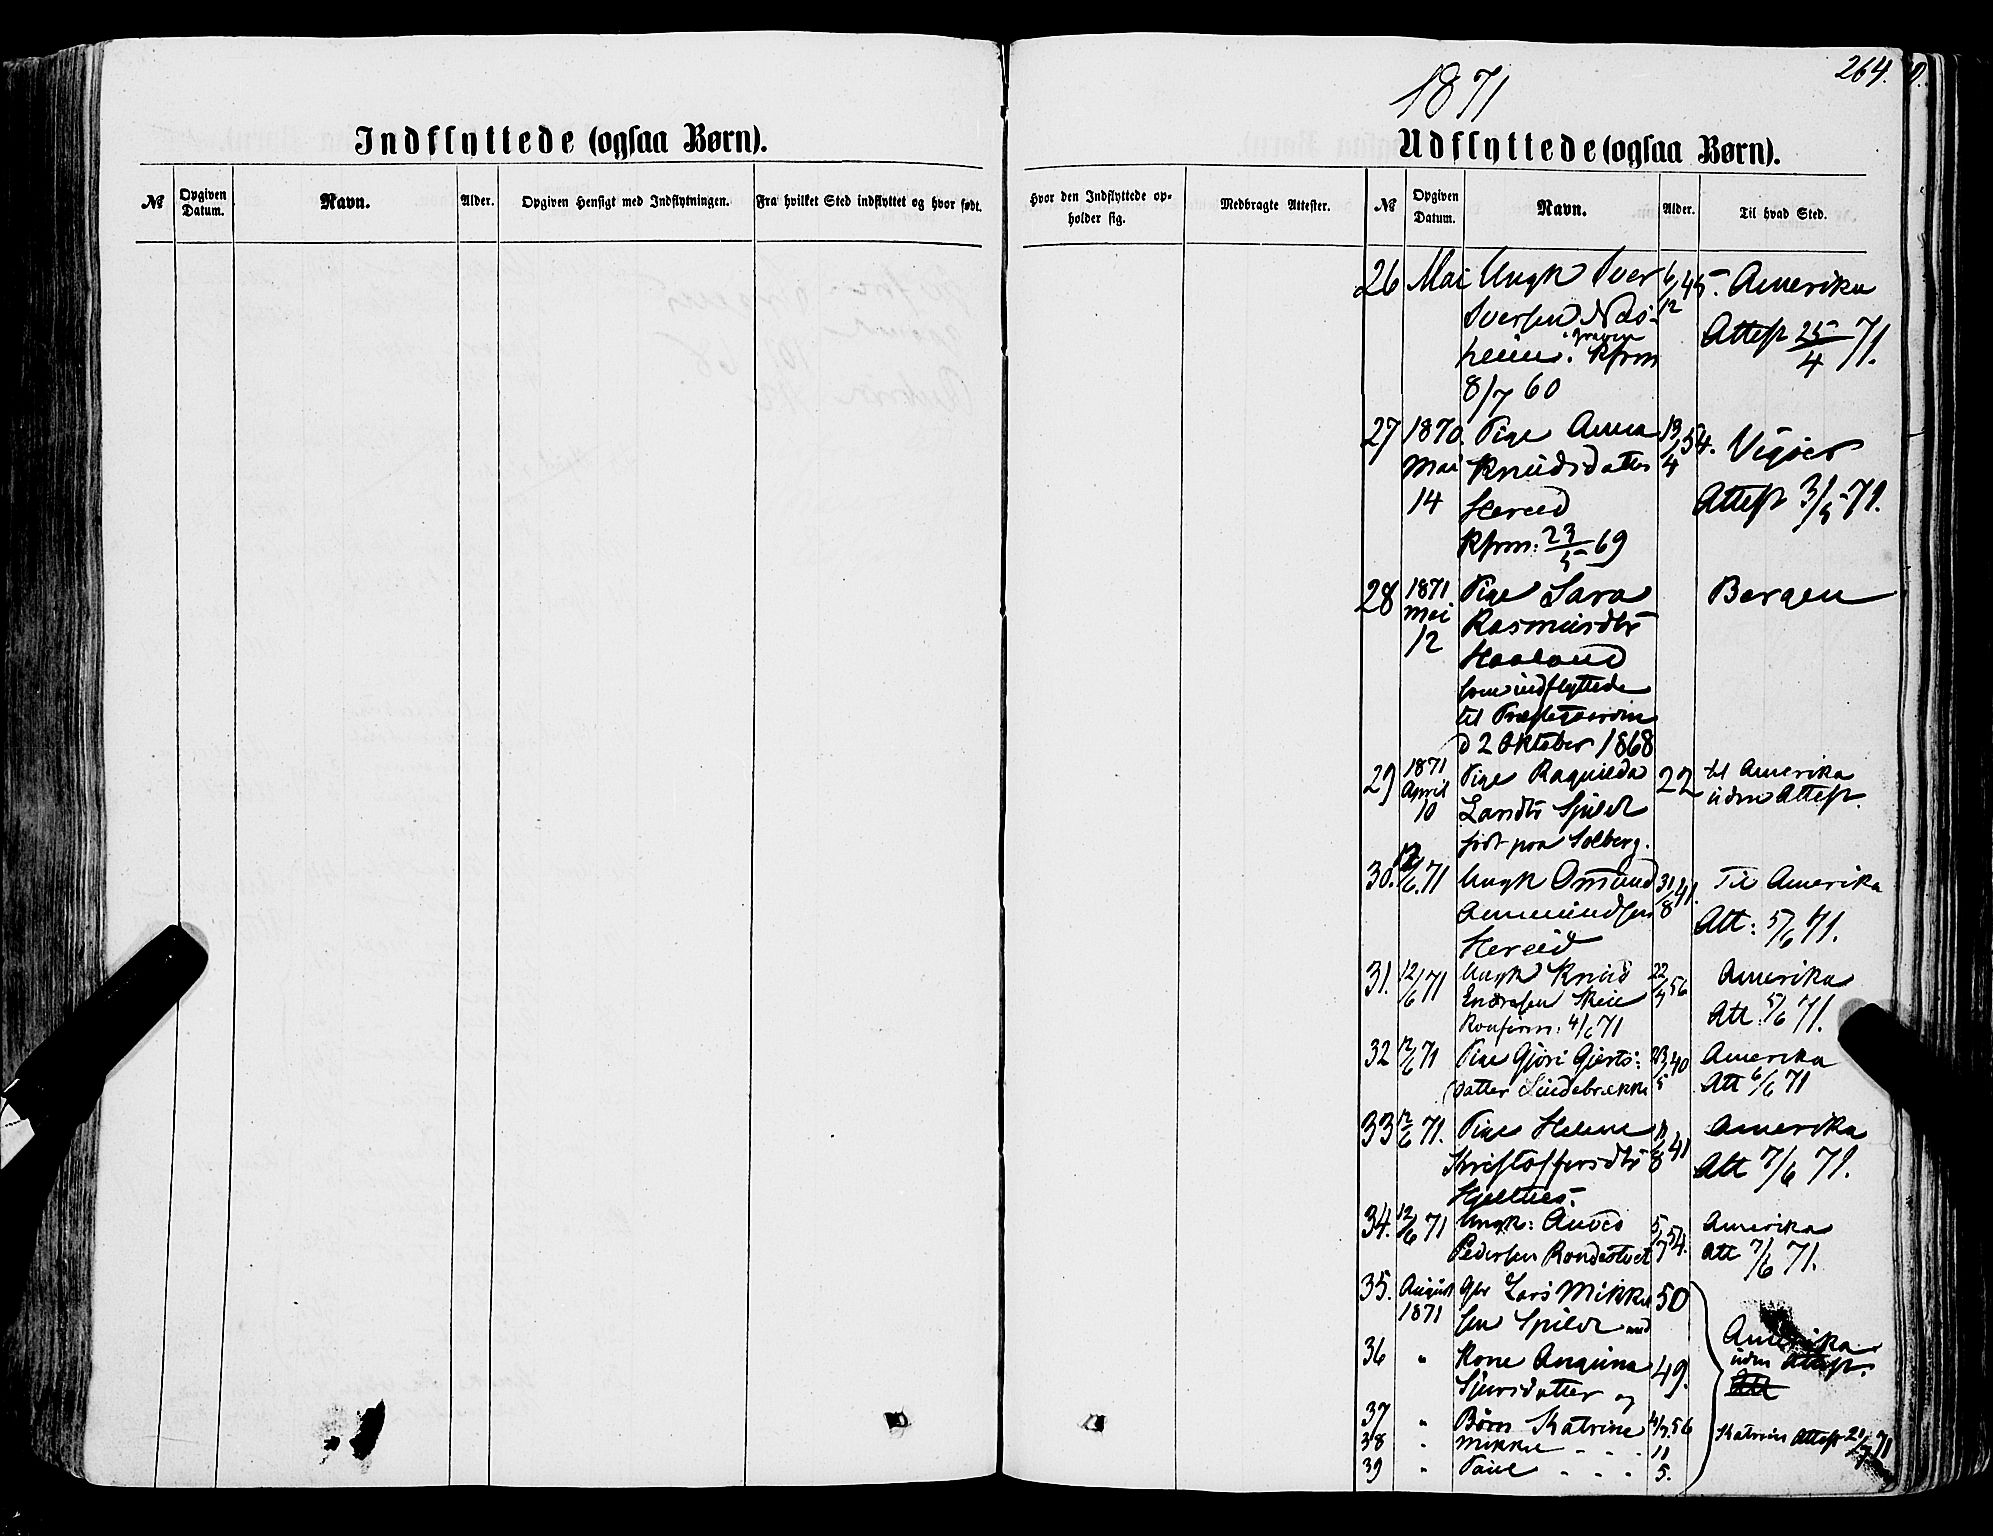 264.
1871
Indflyttede (ogsaa Børn).
Udflyttede (ogsaa Børn).
№ Opgiven Datum. Navn. Alder. Opgiven Hensigt med Indflytningen. Fra hvilket Sted indflyttet og hvor født.
Hvor den Indflyttede opholder sig. Medbragte Attester. № Opgiven Datum. Navn. Alder. Til hvad Sted.
26 Mai Ungk Iver 6/12 45. Amerika
Iversen Næs-
heim. i Graven Kfrm Attest 25/4 71.
8/7 60
27 1870. Pige Anna 13/4 54. Vigøer
Mai Knudsdatter
14 Hereid Attest 3/5 71.
Kfrm: 23/5 69
28 1871 Pige Sara Bergen
Mai Rasmusdtr
12 Haaland
som indflyttede
til Præstegaarden
d 2 Oktober 1868
29 1871 Pige Ragnilda 22 til Amerika
April Larsdtr Spilde uden Attest.
10 født paa Solberg.
30. 12/6 71 Ungk Omund 31/8 41. Til Amerika
Ammundsen Att: 5/6 71.
Hereid
31. 12/6 71 Ungk Knud 22/4 56 Amerika
Endresen Skeie Att: 5/6 71.
Konfirm: 4/6 71
32 12/6 71 Pige Gjøri Gjerts: 23/5 40 Amerika
datter Lindebrække Att 6/6 71
33 12/6 71. Pige Helene 11/8 41 Amerika
Kristoffersdtr Att 7/6 71.
Hjeltnes.
34. 12/6 71 Ungk: Anved 5/7 54. Amerika
Pedersen Rondestvet Att 7/6 71.
35. August Gbr Lars Mikkel 50
1871 sen Spilde med
36 " Kone Angunna 49. Amerika
Sjursdatter og uden Attest.
Att
37 " Børn Katrine 4/7. 56 Katrine Attest 21/7 71
38 " Mikkel - - - 11
39 " Paul - - - 5.